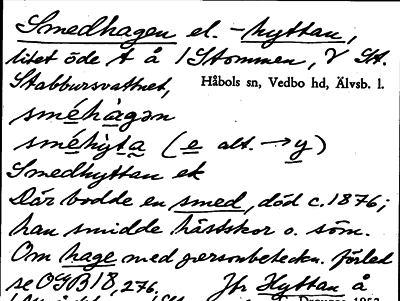 Smedhagen el. -hyttan,
litet öde t å 1 Stommen, V St.
Stabbursvattnet, Håbols sn, Vedbo hd, Älvsb. l.
sméhàgən
sméhỳta (e alt. → y)
Smedhyttan ek
Där bodde en smed, död c. 1876;
han smidde hästskor o. söm.
Om hage med personbeteckn. förled
se OGB 18, 276. Jfr Hyttan å